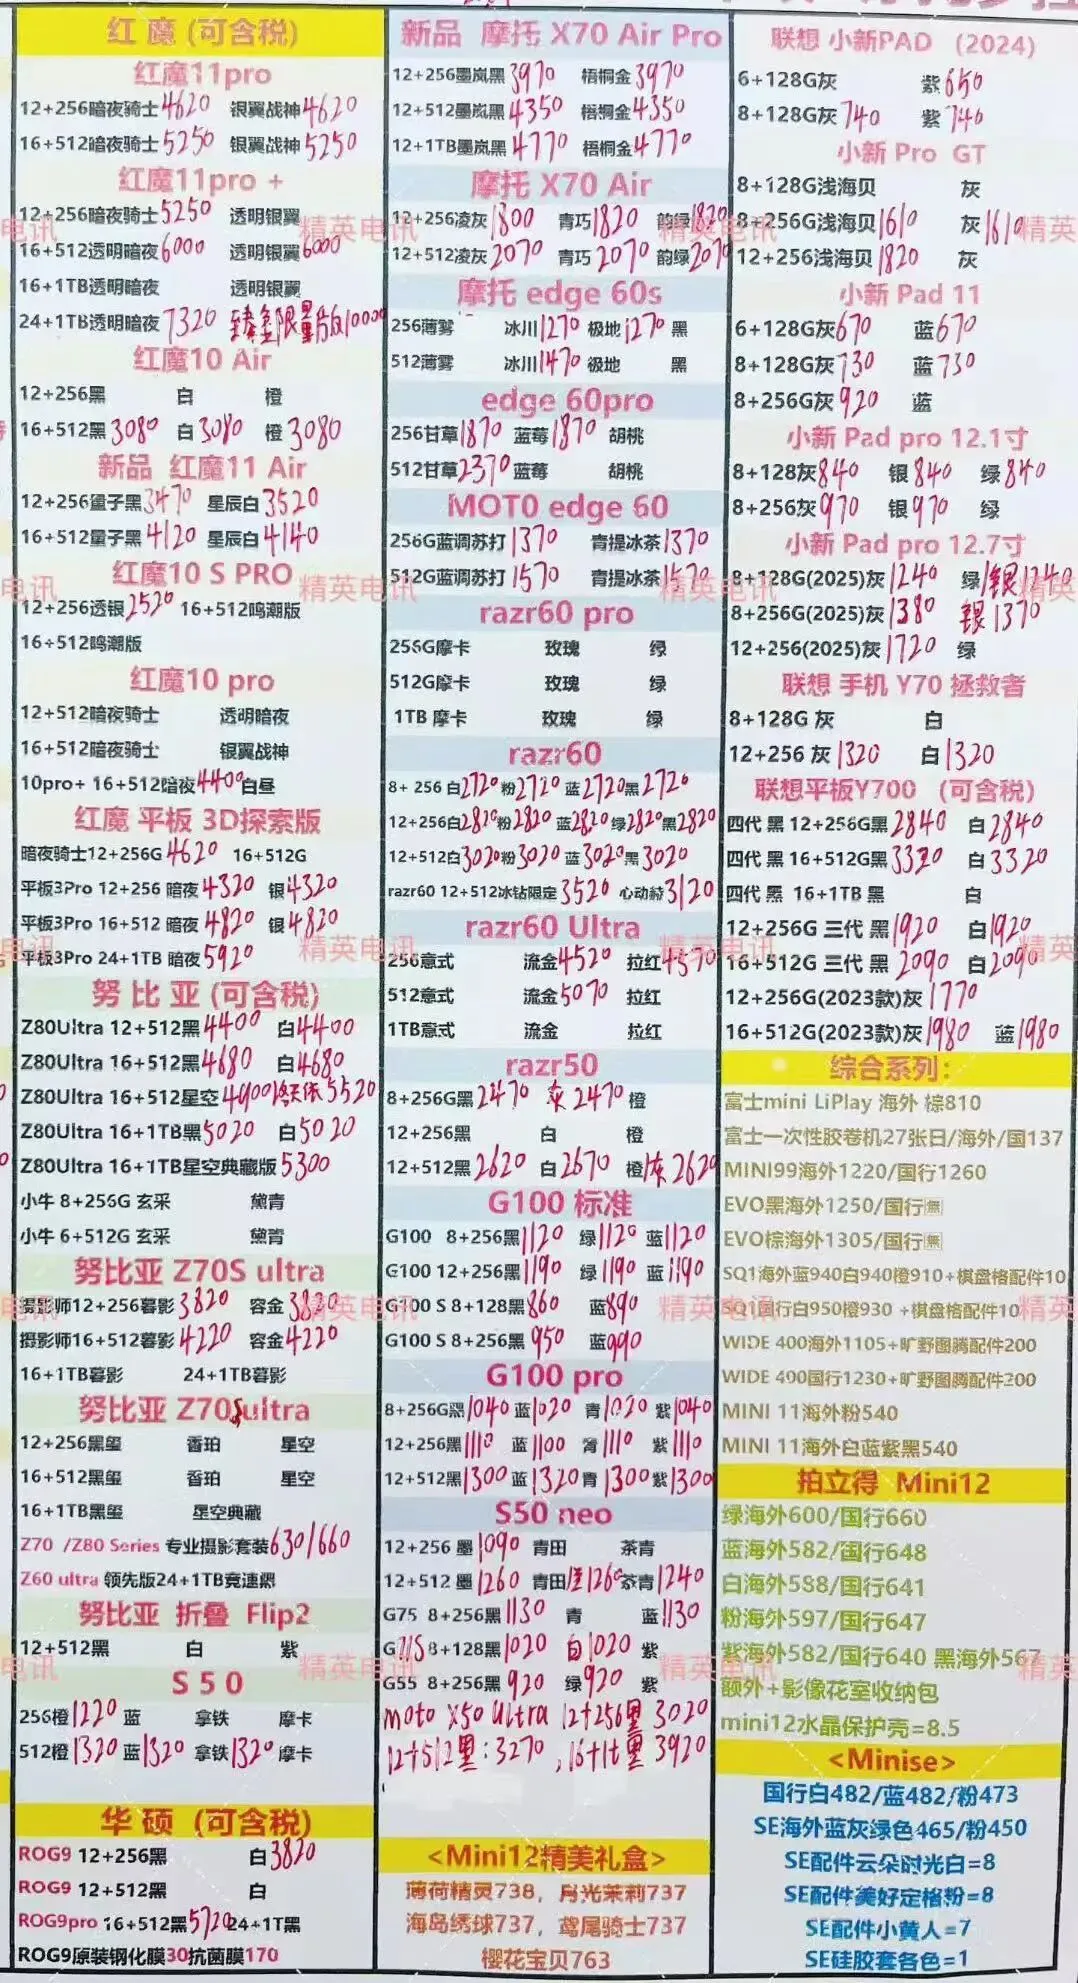 红 魔 (可含税)
红魔11pro
12+256暗夜骑士4620 银翼战神4620
16+512暗夜骑士5250 银翼战神5250
红魔11pro +
12+256暗夜骑士5250 透明银翼
16+512透明暗夜6000 透明银翼6000
16+1TB透明暗夜 透明银翼
24+1TB透明暗夜7320 臻金限量版10000
红魔10 Air
12+256黑 白 橙
16+512黑3080 白3080 橙3080
新品 红魔11 Air
12+256量子黑3470 星辰白3520
16+512量子黑4120 星辰白4140
红魔10 S PRO
12+256透银2520 16+512鸣潮版
16+512鸣潮版
红魔10 pro
12+512暗夜骑士 透明暗夜
16+512暗夜骑士 银翼战神
10pro+ 16+512暗夜4400白昼
红魔 平板 3D探索版
暗夜骑士12+256G4620 16+512G
平板3Pro 12+256 暗夜4320 银4320
平板3Pro 16+512 暗夜4820 银4820
平板3Pro 24+1TB 暗夜5920
努 比 亚 (可含税)
Z80Ultra 12+512黑4400 白4400
Z80Ultra 16+512黑4680 白4680
Z80Ultra 16+512星空4900洛天依5520
Z80Ultra 16+1TB黑5020 白5020
Z80Ultra 16+1TB星空典藏版5300
小牛 8+256G 玄采 黛青
小牛 6+512G 玄采 黛青
努比亚 Z70S ultra
摄影师12+256暮影3820 容金3820
摄影师16+512暮影4220 容金4220
16+1TB暮影 24+1TB暮影
努比亚 Z70Sultra
12+256黑玺 香珀 星空
16+512黑玺 香珀 星空
16+1TB黑玺 星空典藏
Z70 /Z80 Series 专业摄影套装630/660
Z60 ultra 领先版24+1TB竞速黑
努比亚 折叠 Flip2
12+512黑 白 紫
S 5 0
256橙1220 蓝 拿铁 摩卡
512橙1320 蓝1320 拿铁1320 摩卡
华 硕 (可含税)
ROG9 12+256黑 白3820
ROG9 12+512黑 白
ROG9pro 16+512黑5720 24+1T黑
ROG9原装钢化膜30抗菌膜170
新品 摩托 X70 Air Pro
12+256墨岚黑3970 梧桐金3970
12+512墨岚黑4350 梧桐金4350
12+1TB墨岚黑4770 梧桐金4770
摩托 X70 Air
12+256凌灰1800 青巧1820 韵绿1820
12+512凌灰2070 青巧2070 韵绿2070
摩托 edge 60s
256薄雾 冰川1270 极地1270 黑
512薄雾 冰川1470 极地 黑
edge 60pro
256甘草1870 蓝莓1870 胡桃
512甘草2370 蓝莓 胡桃
MOTO edge 60
256G蓝调苏打1370 青提冰茶1370
512G蓝调苏打1570 青提冰茶1570
razr60 pro
256G摩卡 玫瑰 绿
512G摩卡 玫瑰 绿
1TB 摩卡 玫瑰 绿
razr60
8+ 256 白2720 粉2720 蓝2720 黑2720
12+256白2820 粉2820 蓝2820 绿2820 黑2820
12+512白3020 粉3020 蓝3020 黑3020
razr60 12+512冰钻限定3520 心动赫3120
razr60 Ultra
256意式 流金4520 拉红4570
512意式 流金5070 拉红
1TB意式 流金 拉红
razr50
8+256G黑2470 灰2470 橙
12+256黑 白 橙
12+512黑2620 白2670 橙/灰2620
G100 标准
G100 8+256黑1120 绿1120 蓝1120
G100 12+256黑1190 绿1190 蓝1190
G100 S 8+128黑860 蓝890
G100 S 8+256黑950 蓝990
G100 pro
8+256G黑1040 蓝1020 青1020 紫1040
12+256黑1110 蓝1100 青1110 紫1110
12+512黑1300 蓝1320 青1300 紫1300
S50 neo
12+256 墨1090 青田 茶青
12+512 墨1260 青田1260 茶青1240
G75 8+256黑1130 青 蓝1130
8+128黑1020 白1020 紫
G55 8+256黑920 绿920 紫
moto X50 Ultra 12+256黑 3020
12+512黑:3270 ,16+1t黑 3920
<Mini12精美礼盒>
薄荷精灵738, 月光茉莉737
海岛绣球737, 鸢尾骑士737
樱花宝贝763
联想 小新PAD (2024)
6+128G灰 紫650
8+128G灰740 紫740
小新 Pro GT
8+128G浅海贝 灰
8+256G浅海贝1610 灰1610
12+256浅海贝1820 灰
小新 Pad 11
6+128G灰670 蓝670
8+128G灰730 蓝730
8+256G灰920 蓝
小新 Pad pro 12.1寸
8+128灰840 银840 绿840
8+256灰970 银970 绿
小新 Pad pro 12.7寸
8+128G(2025)灰1240 绿/银1240
8+256G(2025)灰1380 银1370
12+256(2025)灰1720 绿
联想 手机 Y70 拯救者
8+128G 灰 白
12+256 灰1320 白1320
联想平板Y700 (可含税)
四代 黑 12+256G黑2840 白2840
四代 黑 16+512G黑3320 白3320
四代 黑 16+1TB 黑 白
12+256G 三代 黑1920 白1920
16+512G 三代 黑2090 白2090
12+256G(2023款)灰1770
16+512G(2023款)灰1980 蓝1980
综合系列:
富士mini LiPlay 海外 棕810
富士一次性胶卷机27张日/海外/国137
MINI99海外1220/国行1260
EVO黑海外1250/国行無
EVO棕海外1305/国行無
SQ1海外蓝940白940橙910+棋盘格配件10
SQ1国行白950橙930 +棋盘格配件10
WIDE 400海外1105+旷野图腾配件200
WIDE 400国行1230+旷野图腾配件200
MINI 11海外粉540
MINI 11海外白蓝紫黑540
拍立得 Mini12
绿海外600/国行660
蓝海外582/国行648
白海外588/国行641
粉海外597/国行647
紫海外582/国行640 黑海外567
额外+影像花室收纳包
mini12水晶保护壳=8.5
<Minise>
国行白482/蓝482/粉473
SE海外蓝灰绿色465/粉450
SE配件云朵时光白=8
SE配件美好定格粉=8
SE配件小黄人=7
SE硅胶套各色=1
精英电讯